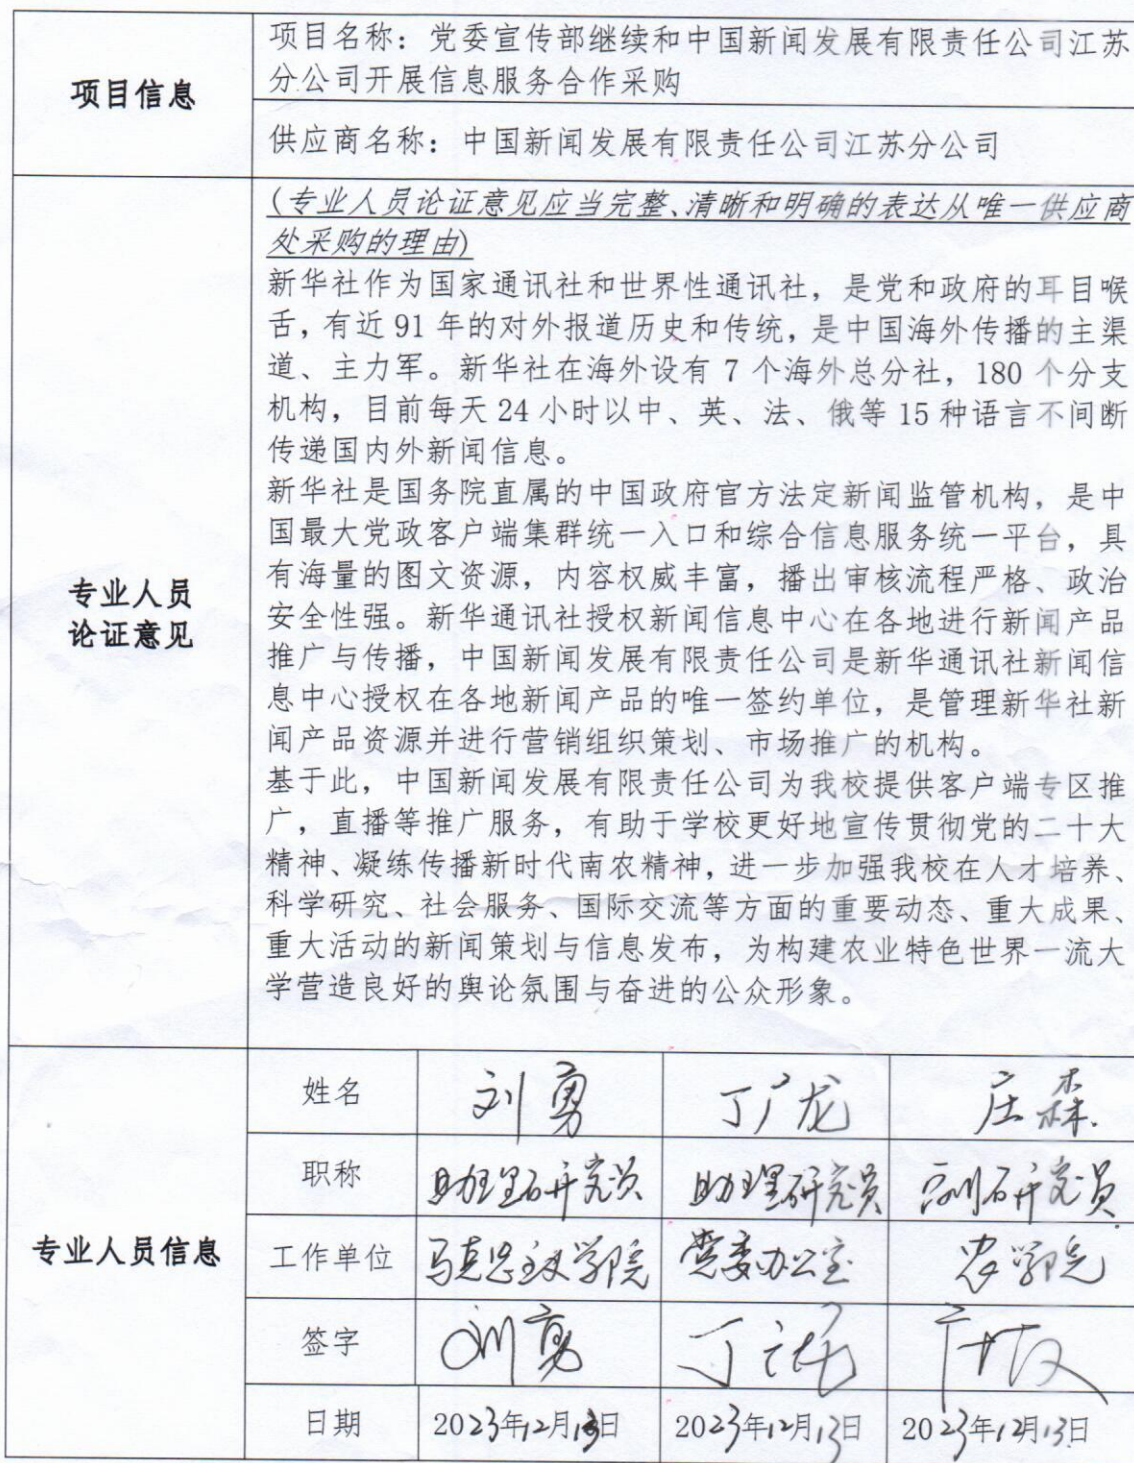 项目信息
项目名称：党委宣传部继续和中国新闻发展有限责任公司江苏
分公司开展信息服务合作采购
供应商名称：中国新闻发展有限责任公司江苏分公司
专业人员
论证意见
(专业人员论证意见应当完整、清晰和明确的表达从唯一供应商
处采购的理由)
新华社作为国家通讯社和世界性通讯社，是党和政府的耳目喉
舌，有近 91 年的对外报道历史和传统，是中国海外传播的主渠
道、主力军。新华社在海外设有 7 个海外总分社，180 个分支
机构，目前每天 24 小时以中、英、法、俄等 15 种语言不间断
传递国内外新闻信息。
新华社是国务院直属的中国政府官方法定新闻监管机构，是中
国最大党政客户端集群统一入口和综合信息服务统一平台，具
有海量的图文资源，内容权威丰富，播出审核流程严格、政治
安全性强。新华通讯社授权新闻信息中心在各地进行新闻产品
推广与传播，中国新闻发展有限责任公司是新华通讯社新闻信
息中心授权在各地新闻产品的唯一签约单位，是管理新华社新
闻产品资源并进行营销组织策划、市场推广的机构。
基于此，中国新闻发展有限责任公司为我校提供客户端专区推
广，直播等推广服务，有助于学校更好地宣传贯彻党的二十大
精神、凝练传播新时代南农精神，进一步加强我校在人才培养、
科学研究、社会服务、国际交流等方面的重要动态、重大成果、
重大活动的新闻策划与信息发布，为构建农业特色世界一流大
学营造良好的舆论氛围与奋进的公众形象。
专业人员信息
姓名 刘勇 丁广龙 庄森
职称 助理研究员 助理研究员 副研究员
工作单位 马克思主义学院 党委办公室 农学院
签字 刘勇 丁广龙
日期 2023年12月13日 2023年12月13日 2023年12月13日